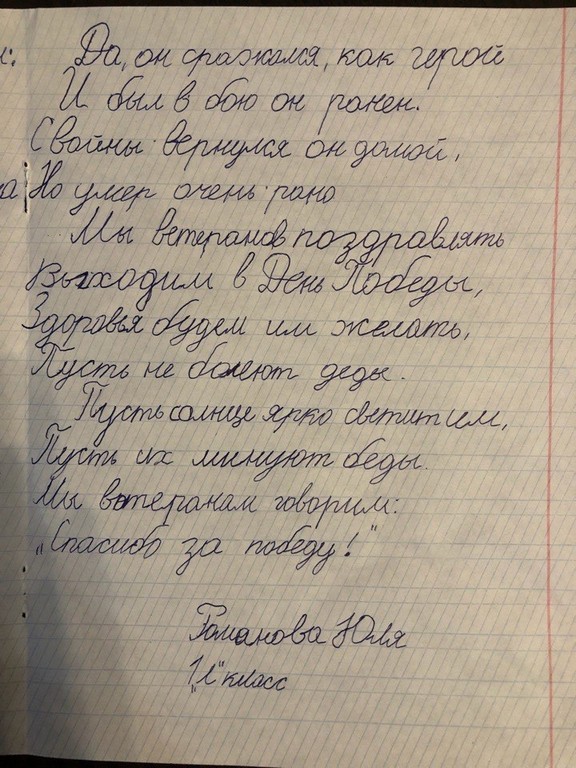 Да, он сражался, как герой
И был в бою он ранен.
С войны вернулся он домой,
Но умер очень рано
Мы ветеранов поздравлять
Выходим в День Победы,
Здоровья будем им желать,
Пусть не болеют деды.
Пусть солнце ярко светит им,
Пусть их минуют беды.
Мы ветеранам говорим:
„Спасибо за победу!"
Романова Юля
класс